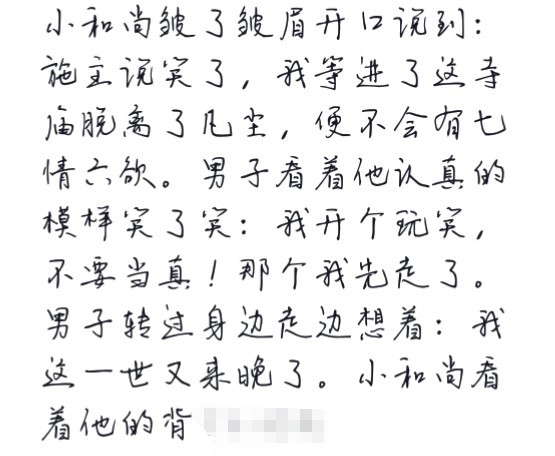 小和尚皱了皱眉开口说到：
施主说笑了，我等进了这寺
庙脱离了凡尘，便不会有七
情六欲。男子看着他认真的
模样笑了笑：我开个玩笑，
不要当真！那个我先走了。
男子转过身边走边想着：我
这一世又来晚了。小和尚看
着他的背